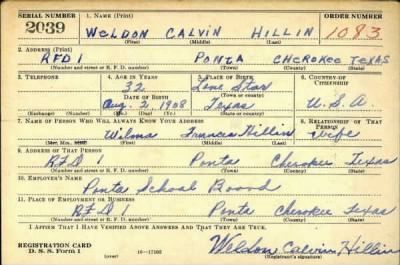 SERIAL NUMBER 1. NAME (Print) ORDER NUMBER
2039 WELDON CALVIN HILLIN 1083
(First) (Middle) (Last)
2. ADDRESS (Print)
RFD 1 PONTA CHEROKEE TEXAS
(Number and street or R. F. D. number) (Town) (County) (State)
3. TELEPHONE 4. AGE IN YEARS 5. PLACE OF BIRTH 6. COUNTRY OF CITIZENSHIP
32 Lone Star
DATE OF BIRTH (Town or county)
Aug. 2, 1908 Texas U.S.A.
(Exchange) (Number) (Mo.) (Day) (Yr.) (State or country)
7. NAME OF PERSON WHO WILL ALWAYS KNOW YOUR ADDRESS 8. RELATIONSHIP OF THAT PERSON
Wilma Francis Hillin Wife
(First) (Middle) (Last)
9. ADDRESS OF THAT PERSON
R.F.D 1 Ponta Cherokee Texas
(Number and street or R. F. D. number) (Town) (County) (State)
10. EMPLOYER'S NAME
Ponta School Board
11. PLACE OF EMPLOYMENT OR BUSINESS
R.F.D 1 Ponta Cherokee Texas
(Number and street or R. F. D. number) (Town) (County) (State)
I AFFIRM THAT I HAVE VERIFIED ABOVE ANSWERS AND THAT THEY ARE TRUE.
REGISTRATION CARD Weldon Calvin Hillin
D. S. S. Form 1 (over) (Registrant's signature)